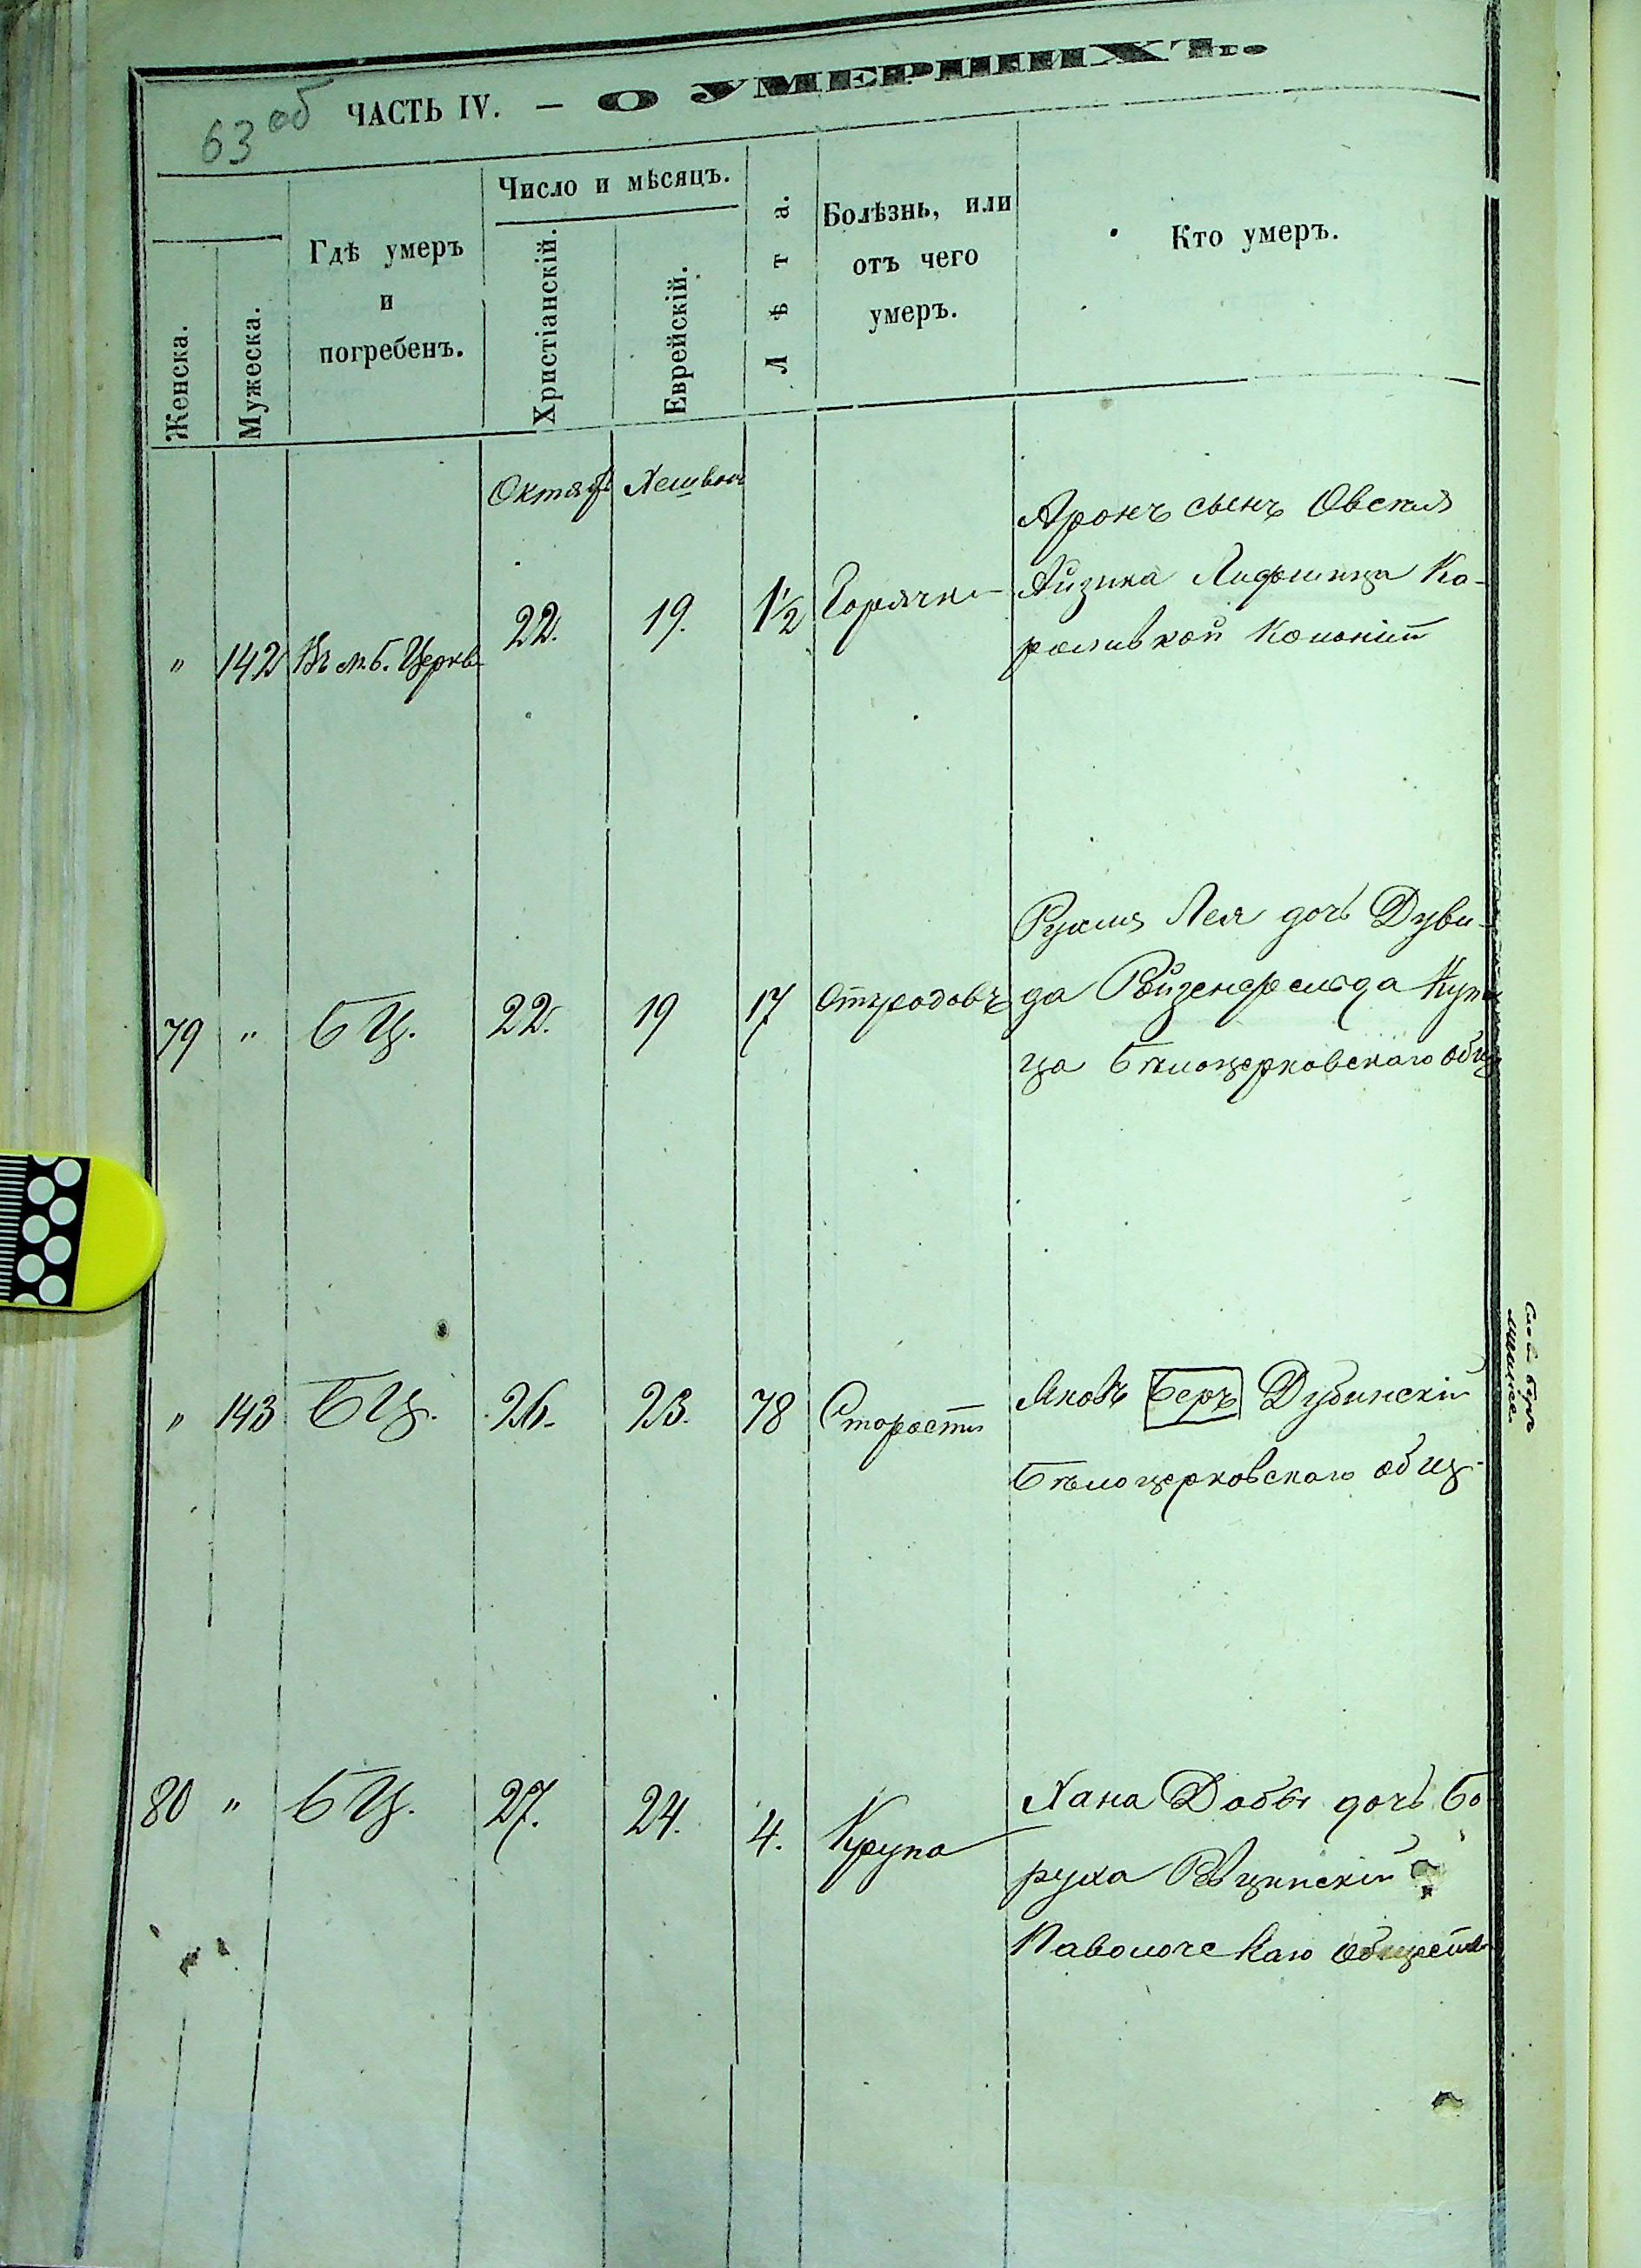 63 об
ЧАСТЬ IV. — О УМЕРШИХЪ.
Женска.
Мужеска.
Гдѣ умеръ
и
погребенъ.
Число и мѣсяцъ.
Христіанскій.
Еврейскій.
Лѣта.
Болѣзнь, или
отъ чего
умеръ.
Кто умеръ.
Октяб Хешвон
" 142 Въ м. б. Церкв 22. 19. 1½ Горячк
Аронъ сынъ Овсея
Айзика Лифшица Ко-
роливкой Колоніи
79 " БЦ. 22. 19 17 Отъродовъ
Рухля Лея дочь Дуви-
да Ройзенфельда Куп
ца Бѣлоцерковскаго общ
" 143 БЦ. 26. 23. 78 Старости
Яковъ Беръ Дубинскій
Бѣлоцерковскаго общ-
80 " БЦ. 27. 24. 4. Крупа
Хана Доба дочь Бо
руха
Паволочскаго обществ